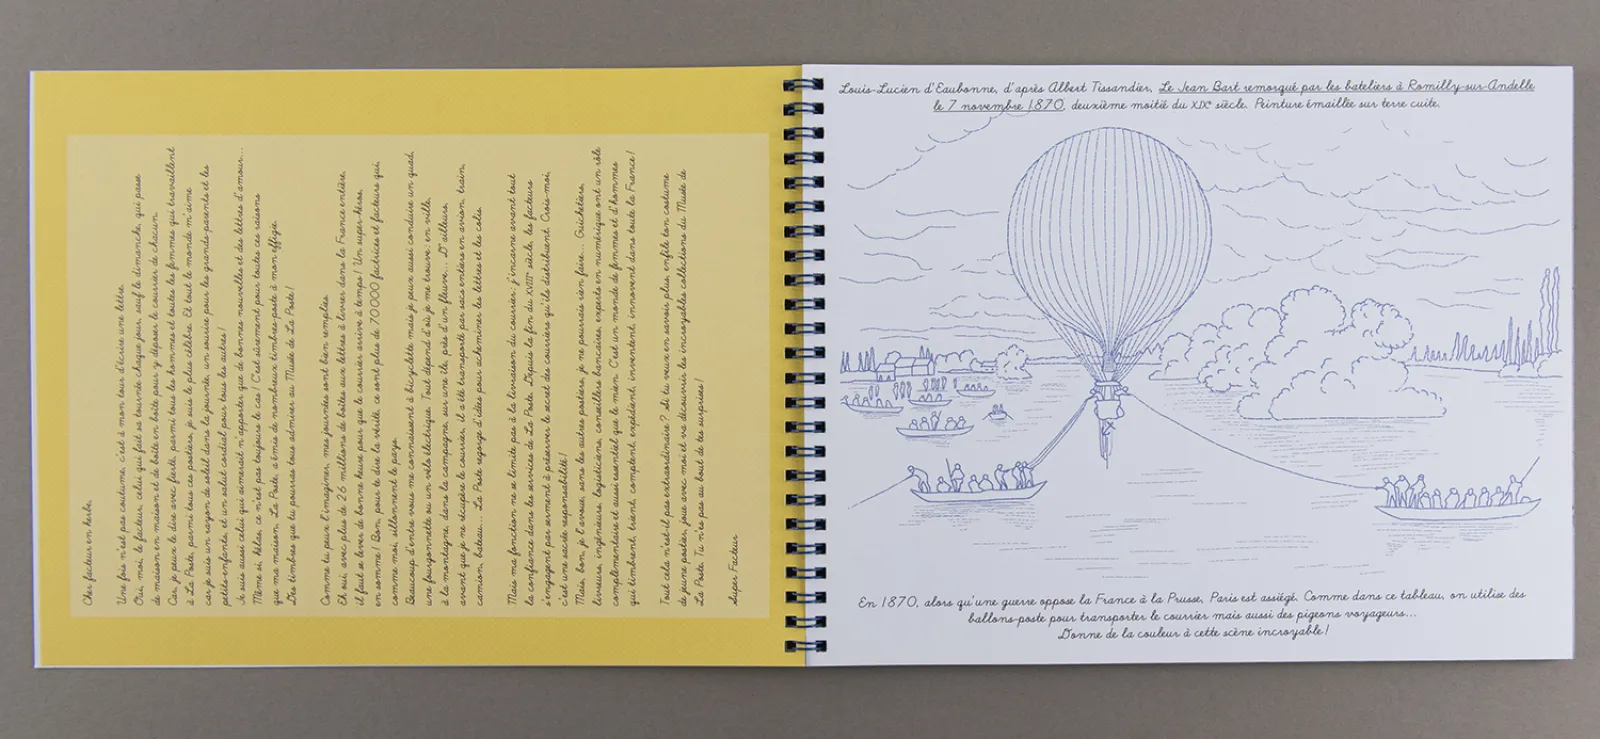 Cher facteur en herbe,
Une fois n'est pas coutume, c'est à mon tour d'écrire une lettre.
Oui, moi le facteur, celui qui fait sa tournée chaque jour sauf le dimanche, qui passe
de maison en maison et de boîte en boîte pour y déposer le courrier de chacun.
Car, je peux le dire avec fierté, parmi tous les hommes et toutes les femmes qui travaillent
à La Poste, parmi tous ces postiers, je suis le plus célèbre. Et tout le monde m'aime
car je suis un rayon de soleil dans la journée, un sourire pour les grands-parents et les
petits-enfants, et un salut cordial pour tous les autres !
Je suis aussi celui qui aimerait n'apporter que de bonnes nouvelles et des lettres d'amour...
Même si, hélas, ce n'est pas toujours le cas ! C'est sûrement pour toutes ces raisons
que ma maison, La Poste, a émis de nombreux timbres-poste à mon effigie.
Des timbres que tu pourras tous admirer au Musée de La Poste !
Comme tu peux l'imaginer, mes journées sont bien remplies.
Eh oui, avec plus de 26 millions de boîtes aux lettres à livrer dans la France entière,
il faut se lever de bonne heure pour que le courrier arrive à temps ! Un super-héros,
en somme ! Bon, pour te dire la vérité, ce sont plus de 70 000 factrices et facteurs qui,
comme moi, sillonnent le pays.
Beaucoup d'entre vous me connaissent à bicyclette mais je peux aussi conduire un quad,
une fourgonnette ou un vélo électrique. Tout dépend d'où je me trouve : en ville,
à la montagne, dans la campagne, sur une île, près d'un fleuve... D'ailleurs,
avant que je ne récupère le courrier, il a été transporté par sacs entiers en avion, train,
camion, bateau... La Poste regorge d'idées pour acheminer les lettres et les colis.
Mais ma fonction ne se limite pas à la livraison du courrier : j'incarne avant tout
la confiance dans les services de La Poste. Depuis la fin du XVIIIe siècle, les facteurs
s'engagent par serment à préserver le secret des courriers qu'ils distribuent. Crois-moi,
c'est une sacrée responsabilité !
Mais, bon, je l'avoue, sans les autres postiers, je ne pourrais rien faire... Guichetiers,
livreurs, ingénieurs, logisticiens, conseillers bancaires, experts en numérique ont un rôle
complémentaire et aussi essentiel que le mien. C'est un monde de femmes et d'hommes
qui timbrent, trient, comptent, expédient, inventent, innovent dans toute la France !
Tout cela n'est-il pas extraordinaire ? Si tu veux en savoir plus, enfile ton costume
de jeune postier, joue avec moi et va découvrir les incroyables collections du Musée de
La Poste. Tu n'es pas au bout de tes surprises !
Super Facteur
Louis-Lucien d'Eaubonne, d'après Albert Tissandier, Le Jean Bart remorqué par les bateliers à Romilly-sur-Andelle
le 7 novembre 1870, deuxième moitié du XIXe siècle. Peinture émaillée sur terre cuite.
En 1870, alors qu'une guerre oppose la France à la Prusse, Paris est assiégé. Comme dans ce tableau, on utilise des
ballons-poste pour transporter le courrier mais aussi des pigeons voyageurs...
Donne de la couleur à cette scène incroyable !